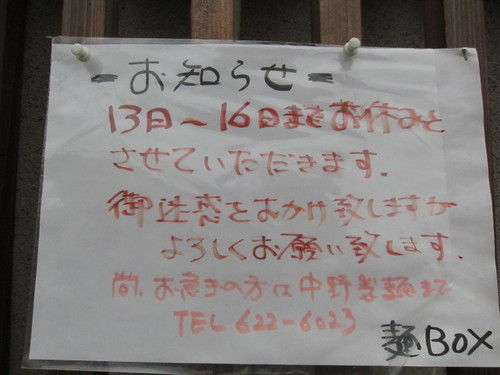 =お知らせ=
13日～16日までお休みと
させていただきます.
御迷惑をおかけ致しますが
よろしくお願い致します.
尚、お急ぎの方は中野製麺まで
TEL 622-6023
麺BOX